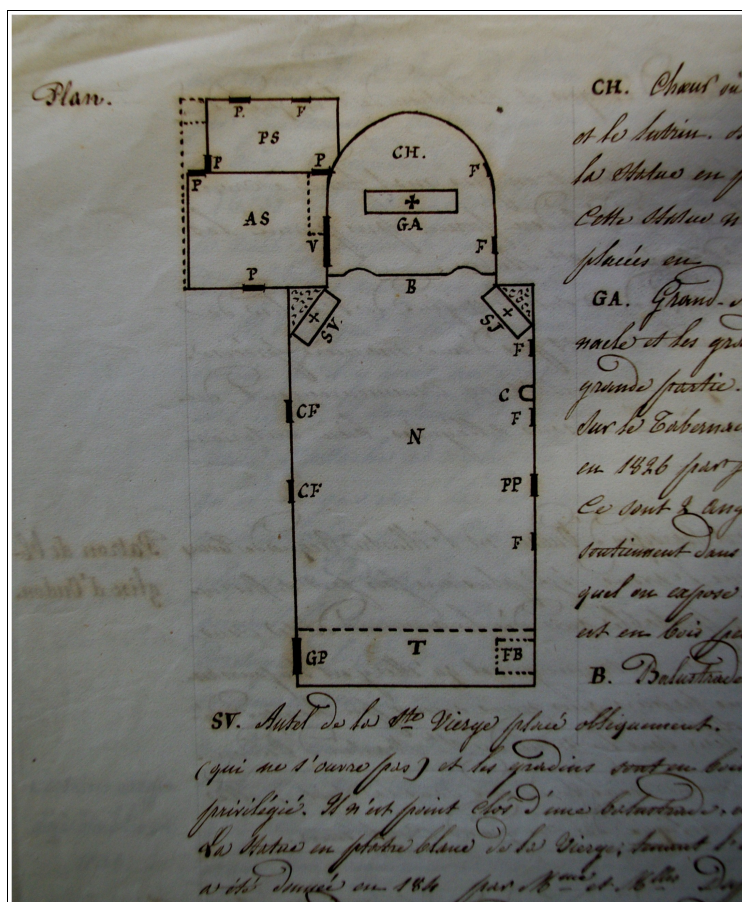 Plan.
P. F
PS
P P
P
AS
V
P
CH.
F
GA
F
B
SV. SJ
F
C
F
CF
N
CF
PP
F
GP T FB
CH. Chœur où
et le lutrin.
la Statue en p
Cette Statue n
placées en
GA. Grand-
nacle et les gra
grande partie.
Sur le Tabernac
en 1826 par
Ce sont 2 ang
soutiennent dans
quel on expose
est en bois
B. Balustrade
SV. Autel de la Ste Vierge placé obliquement.
(qui ne s'ouvre pas) et les gradins sont en
privilégié. Il n'est point clos d'une balustrade.
La Statue en plâtre blanc de la Vierge, tenant
a été donnée en par Mme et Melles